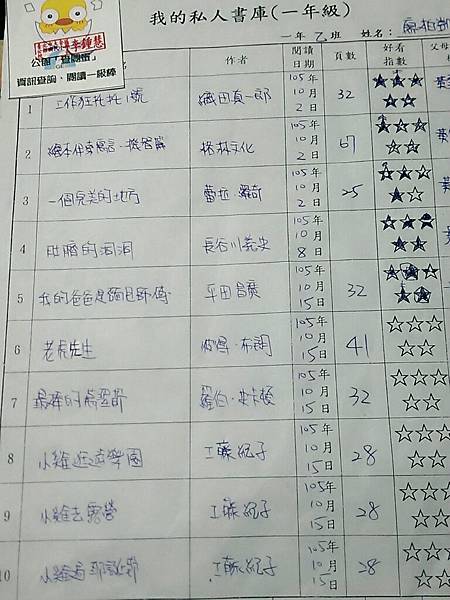 我的私人書庫(一年級)
一年 乙班 姓名:
公園「查閱蛋」
資訊查詢、閱讀一級棒
作者 閱讀日期 頁數 好看指數
1 工作狂托托1號 織田真一郎 105年10月2日 32
2 格林文化 105年10月2日 67
3 一個完美的地方 蕾拉·羅奇 105年10月2日 25
4 肚臍的洞洞 長谷川義史 105年10月8日
5 我的爸爸是麵包師傅 平田昌廣 105年10月15日 32
6 老虎先生 彼得·布朗 105年10月15日 41
7 羅伯·史卡頓 105年10月15日 32
8 小雞逛遊樂園 工藤紀子 105年10月15日 28
9 小雞去露營 工藤紀子 105年10月15日 28
10 小雞過耶誕節 工藤紀子 105年10月15日 28